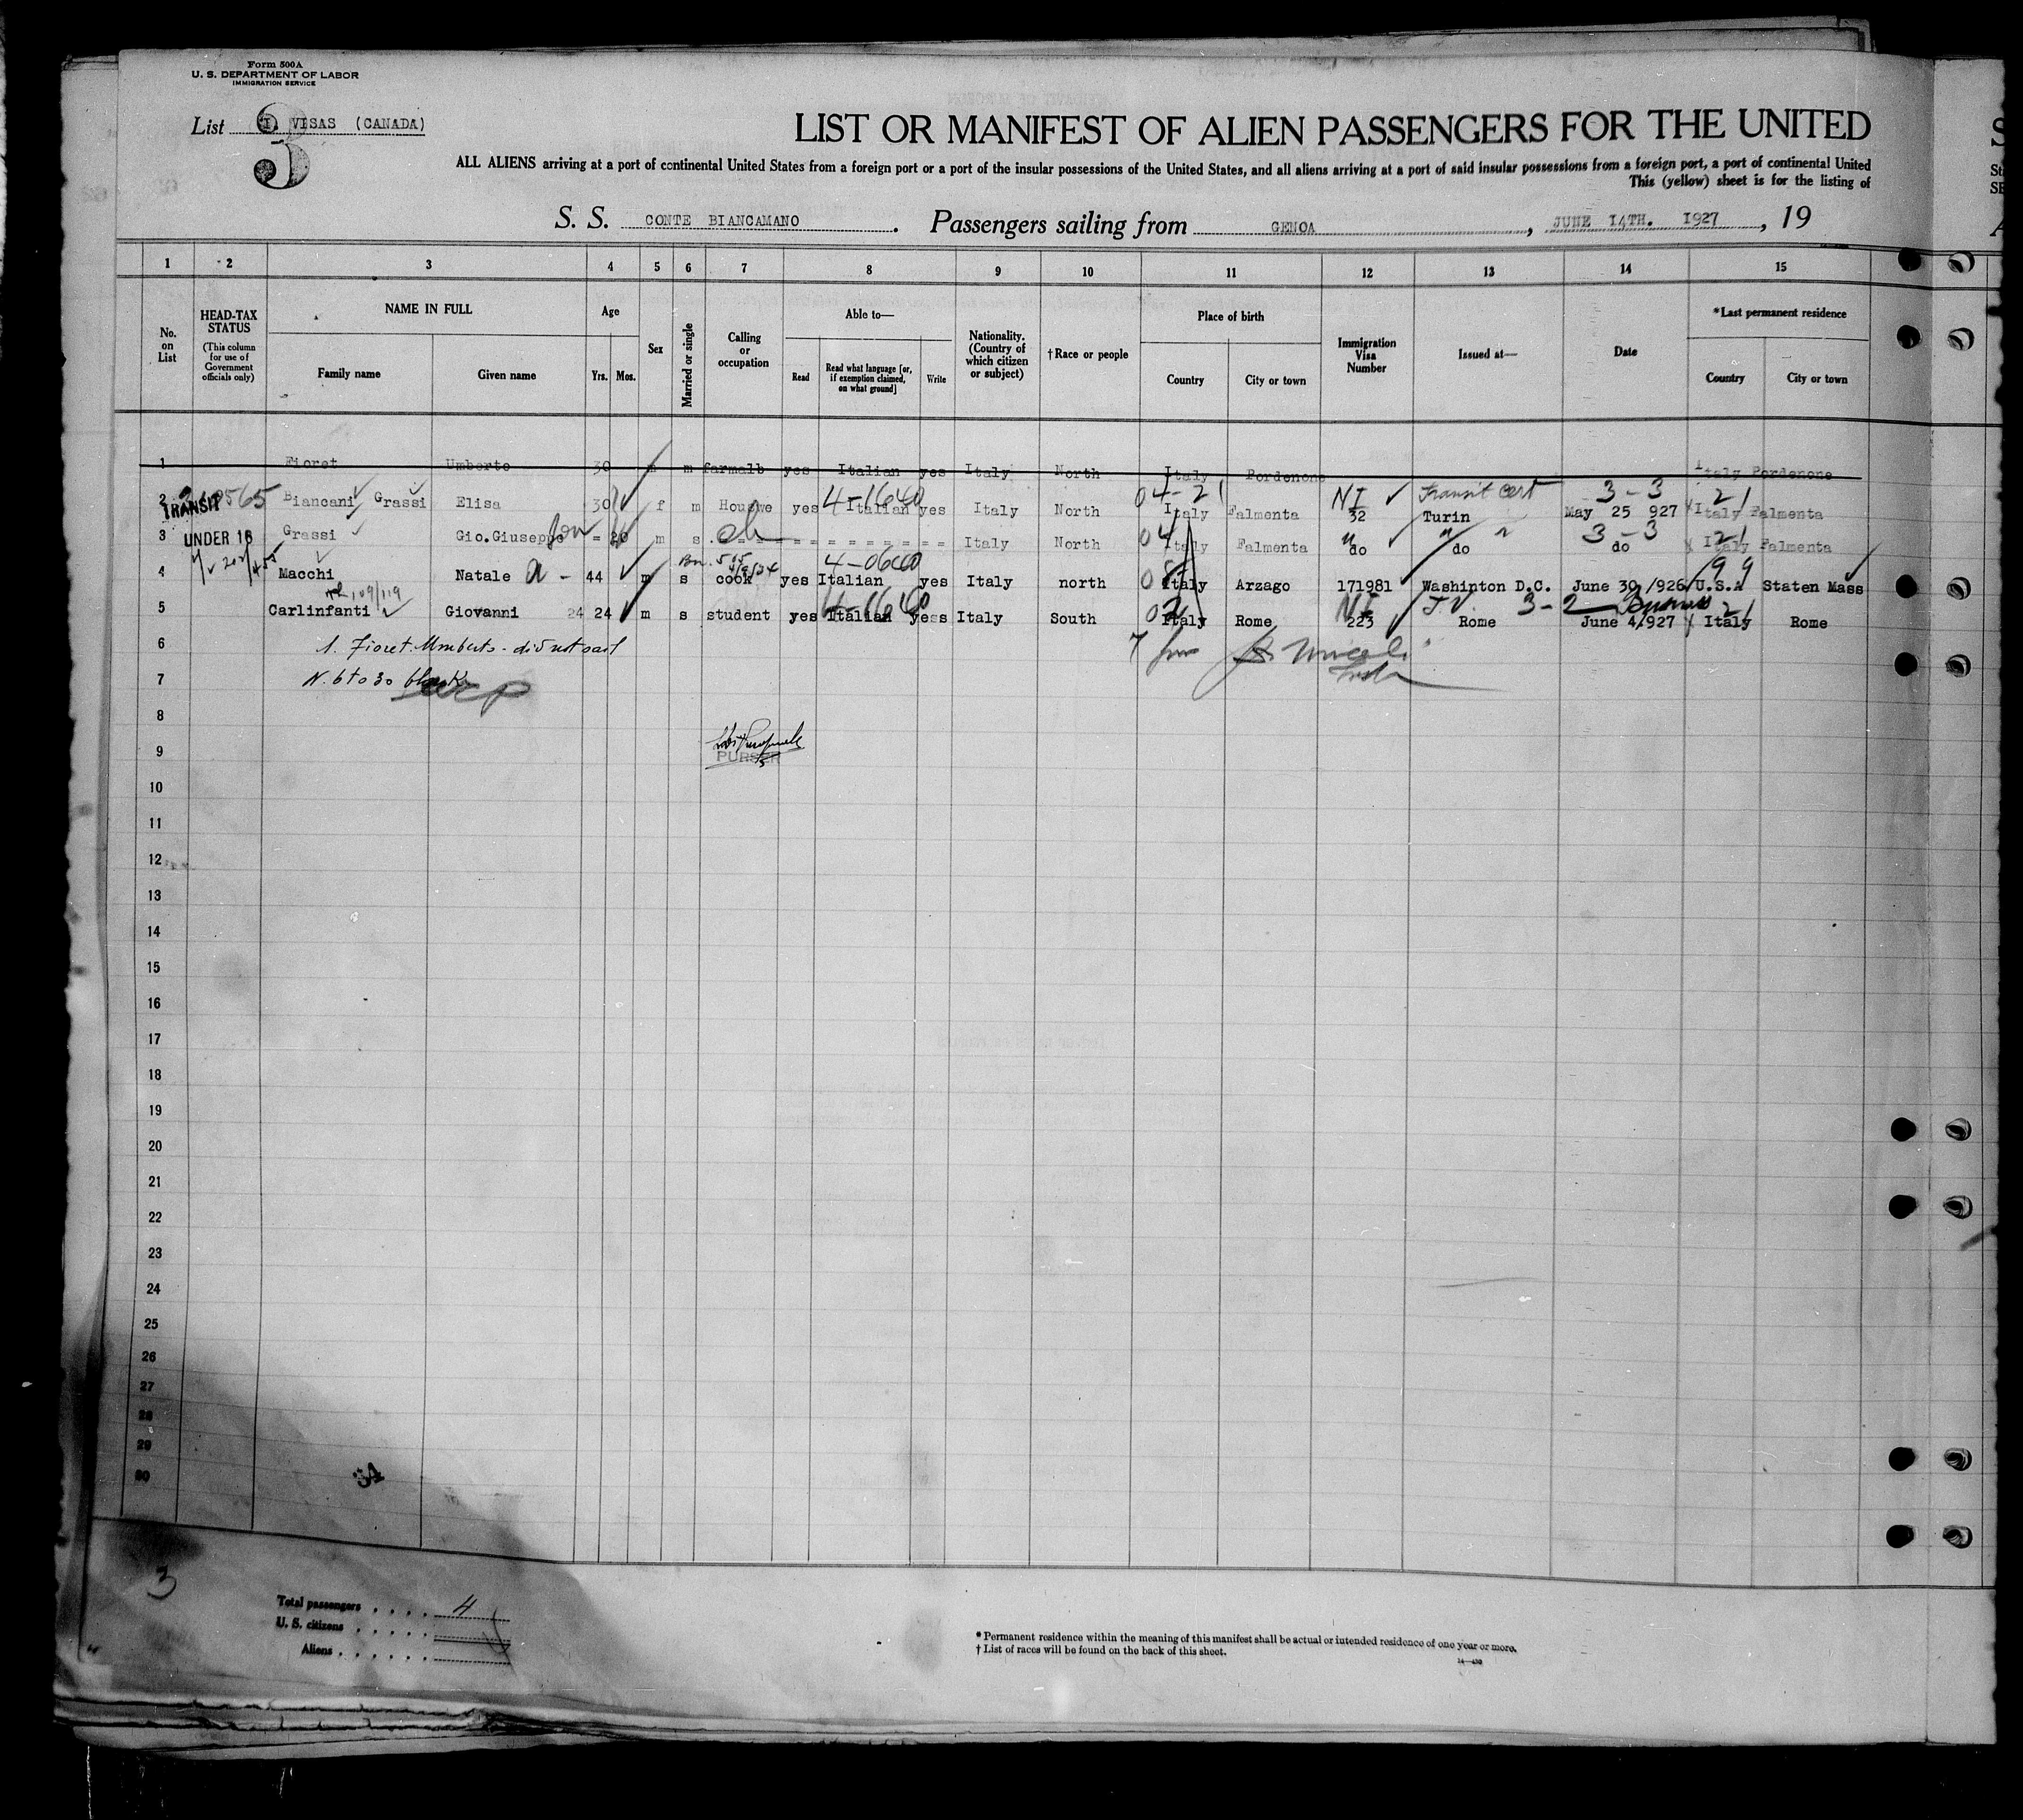 Form 500A
U. S. DEPARTMENT OF LABOR
IMMIGRATION SERVICE
List I. VISAS (CANADA)
3
LIST OR MANIFEST OF ALIEN PASSENGERS FOR THE UNITED
ALL ALIENS arriving at a port of continental United States from a foreign port or a port of the insular possessions of the United States, and all aliens arriving at a port of said insular possessions from a foreign port, a port of continental United
This (yellow) sheet is for the listing of
S. S. CONTE BIANCAMANO. Passengers sailing from GENOA, JUNE 14TH. 1927, 19
1 2 3 4 5 6 7 8 9 10 11 12 13 14 15
No. on List
HEAD-TAX STATUS
(This column for use of Government officials only)
NAME IN FULL
Family name
Given name
Age
Yrs. Mos.
Sex
Married or single
Calling or occupation
Able to—
Read
Read what language [or, if exemption claimed, on what ground]
Write
Nationality. (Country of which citizen or subject)
†Race or people
Place of birth
Country
City or town
Immigration Visa Number
Issued at—
Date
*Last permanent residence
Country
City or town
1 Fioret Umberto 30 m m farmalb yes Italian yes Italy North Italy Pordenone Italy Pordenone
4-1640 04-21 NI Transit cert 3-3 21
2 TRANSIT Biancani Grassi Elisa 30 f m Houswe yes Italian yes Italy North Italy Falmenta 32 Turin May 25 927 Italy Falmenta
3-3 21
3 UNDER 16 Grassi Gio.Giuseppe son = 20 m s ch Italy North Italy Falmenta do do do Italy Falmenta
505 4-0640 99
4 Macchi Natale a - 44 m s cook yes Italian yes Italy north Italy Arzago 171981 Washinton D.C. June 30 /926 U.S.A Staten Mass
109/119 4-1640 NI T.V. 3-2 Business 21
5 Carlinfanti Giovanni 24 24 m s student yes Italian yess Italy South Italy Rome 223 Rome June 4,927 Italy Rome
6 1. Fioret Umberto - did not sail
7 N. 6 to 30 blank
8
9 PURSER
10
11
12
13
14
15
16
17
18
19
20
21
22
23
24
25
26
27
28
29
30
3
Total passengers . . . . 4
U. S. citizens . . . . .
Aliens . . . . . .
* Permanent residence within the meaning of this manifest shall be actual or intended residence of one year or more.
† List of races will be found on the back of this sheet.
14—430